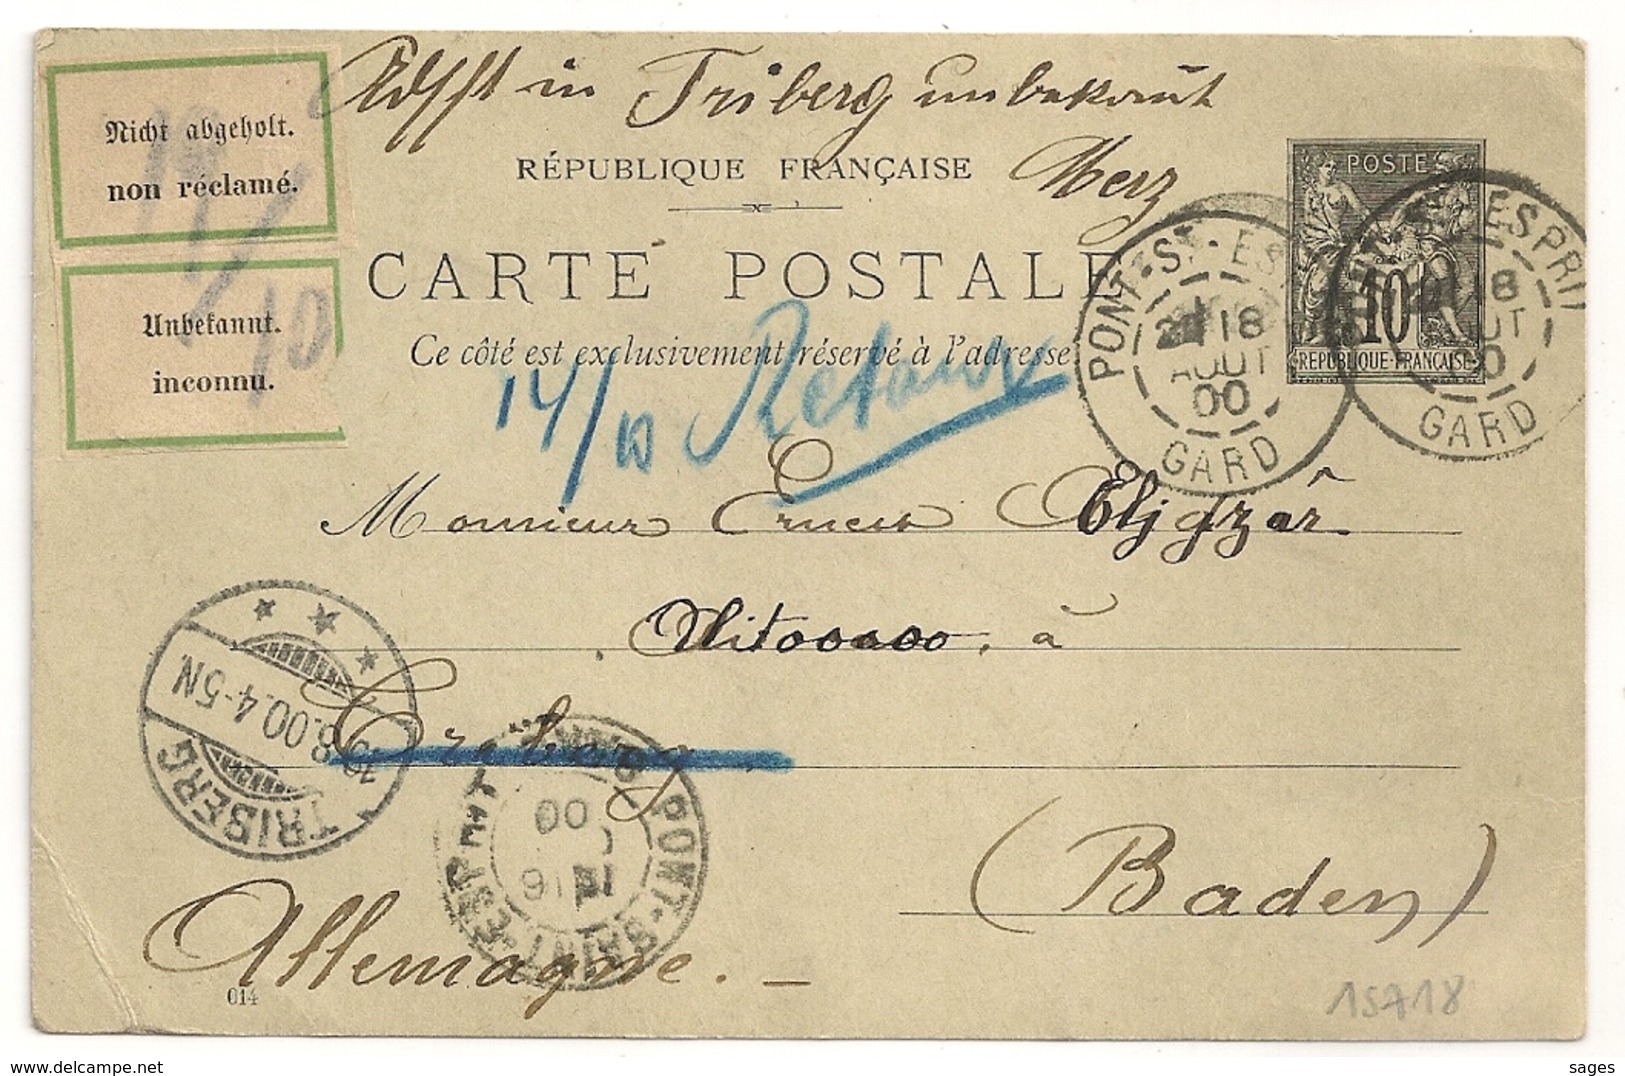 in Triberg unbekannt
Merz
Nicht abgeholt.
non réclamé.
Unbekannt.
inconnu.
RÉPUBLIQUE FRANÇAISE
CARTE POSTALE
Ce côté est exclusivement réservé à l'adresse
14/10 Retour
POSTE
10
REPUBLIQUE FRANÇAISE
PONT-ST-ESPRIT
18
AOUT
00
GARD
PONT-ST-ESPRIT
18
AOUT
00
GARD
Monsieur Ernest
à
(Baden)
Allemagne.
TRIBERG
19.8.00.4-5N
PONT-SAINT-ESPRIT
16
00
014
15718
sages
www.delcampe.net